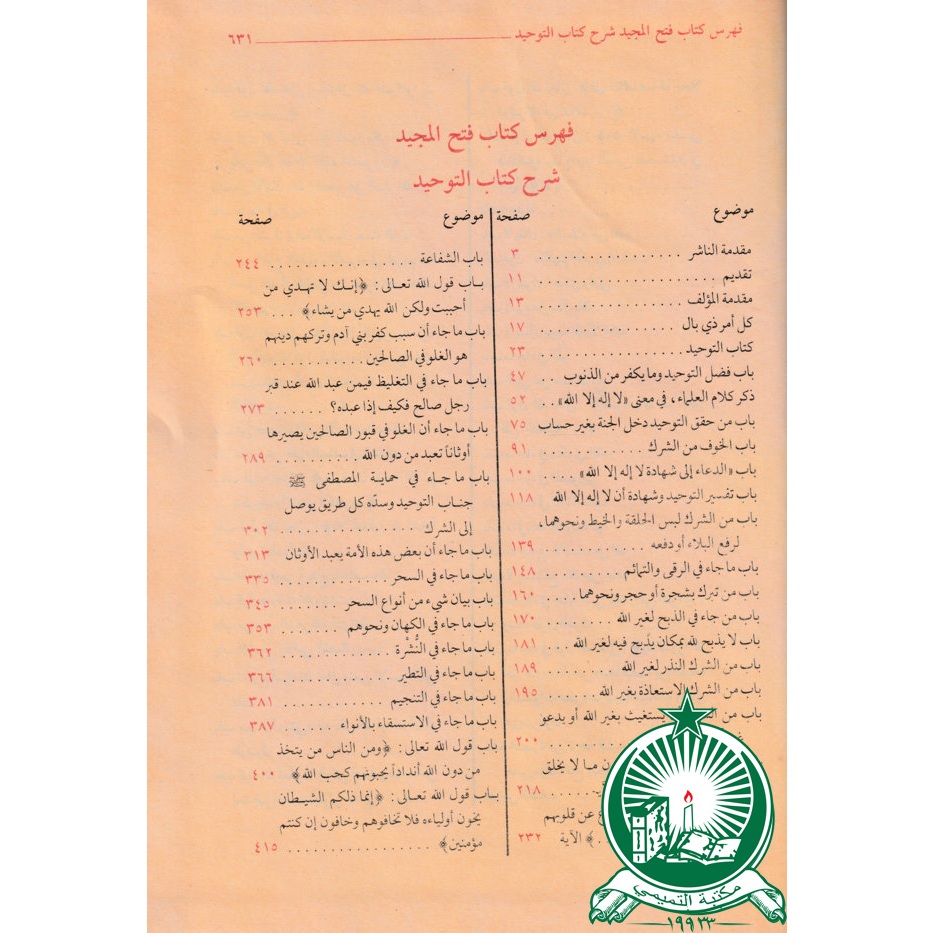 فهرس كتاب فتح المجيد شرح كتاب التوحيد ٦٣١
فهرس كتاب فتح المجيد
شرح كتاب التوحيد
موضوع صفحة
مقدمة الناشر ................ ٣
تقديم .................... ١١
مقدمة المؤلف ............. ١٣
كل أمر ذي بال ............. ١٧
كتاب التوحيد .............. ٢٣
باب فضل التوحيد وما يكفر من الذنوب .. ٤٧
ذكر كلام العلماء، في معنى «لا إله إلا الله» .. ٥٢
باب من حقق التوحيد دخل الجنة بغير حساب ٧٥
باب الخوف من الشرك ........... ٩١
باب «الدعاء إلى شهادة لا إله إلا الله» .... ١٠٠
باب تفسير التوحيد وشهادة أن لا إله إلا الله ١١٨
باب من الشرك لبس الحلقة والخيط ونحوهما،
لرفع البلاء أو دفعه ............ ١٣٩
باب ما جاء في الرقى والتمائم ........ ١٤٨
باب من تبرك بشجرة أو حجر ونحوهما .... ١٦٠
باب من جاء في الذبح لغير الله ........ ١٧٠
باب لا يذبح لله بمكان يذبح فيه لغير الله ... ١٨١
باب من الشرك النذر لغير الله ........ ١٨٩
باب من الشرك الاستعاذة بغير الله ...... ١٩٥
باب من يستغيث بغير الله أو يدعو
٢٠٠
ما لا يخلق
٢١٨
عن قلوبهم
﴾ الآية ٢٣٢
موضوع صفحة
باب الشفاعة ................ ٢٤٤
باب قول الله تعالى: ﴿إنك لا تهدي من
أحببت ولكن الله يهدي من يشاء﴾ ... ٢٥٣
باب ما جاء أن سبب كفر بني آدم وتركهم دينهم
هو الغلو في الصالحين ............ ٢٦٠
باب ما جاء في التغليظ فيمن عبد الله عند قبر
رجل صالح فكيف إذا عبده؟ ...... ٢٧٣
باب ما جاء أن الغلو في قبور الصالحين يصيرها
أوثاناً تعبد من دون الله .......... ٢٨٩
باب ما جاء في حماية المصطفى ﷺ
جناب التوحيد وسدّه كل طريق يوصل
إلى الشرك ................ ٣٠٢
باب ما جاء أن بعض هذه الأمة يعبد الأوثان ٣١٣
باب ما جاء في السحر ........... ٣٣٥
باب بيان شيء من أنواع السحر ...... ٣٤٥
باب ما جاء في الكهان ونحوهم ....... ٣٥٣
باب ما جاء في النُّشْرة ............ ٣٦٢
باب ما جاء في التطير ............ ٣٦٦
باب ما جاء في التنجيم ............ ٣٨١
باب ما جاء في الاستسقاء بالأنواء ...... ٣٨٧
باب قول الله تعالى: ﴿ومن الناس من يتخذ
من دون الله أنداداً يحبونهم كحب الله﴾ ٤٠٠
باب قول الله تعالى: ﴿إنما ذلكم الشيطان
يخون أولياءه فلا تخافوهم وخافون إن كنتم
مؤمنين﴾ ................ ٤١٥
مكتبة التميمي
١٩٩٣٣